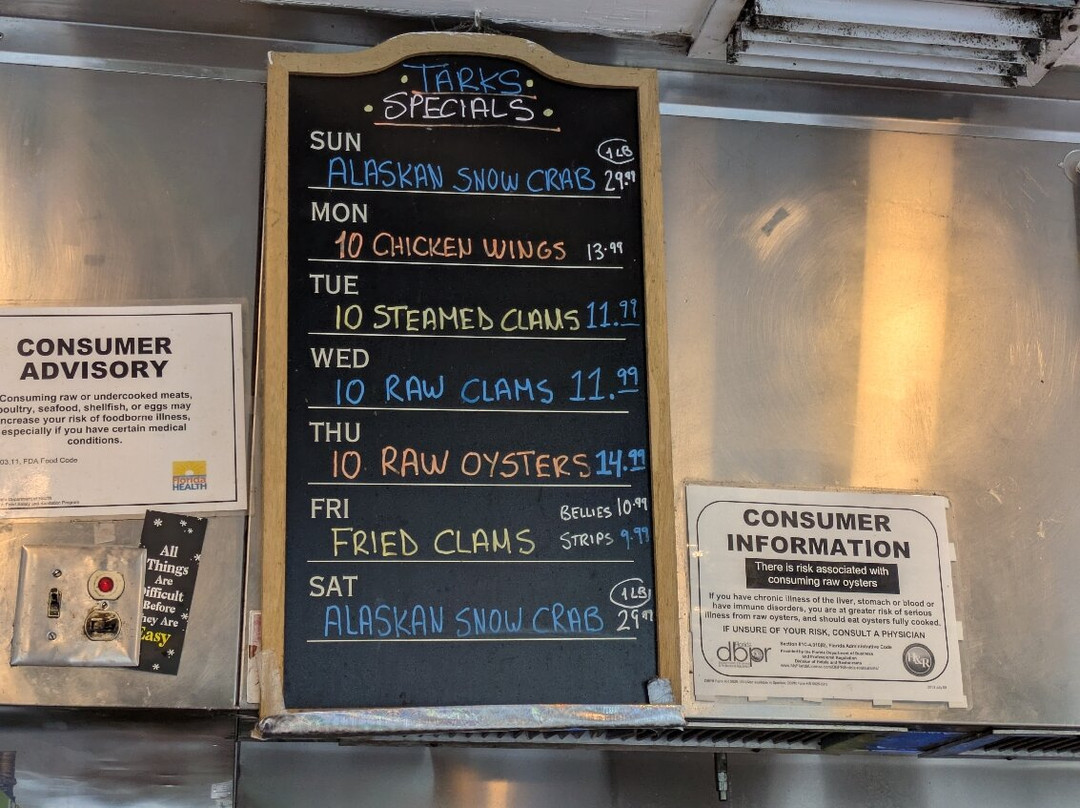 TARKS
SPECIALS
SUN
1 LB
ALASKAN SNOW CRAB 29.99
MON
10 CHICKEN WINGS 13.99
TUE
10 STEAMED CLAMS 11.99
WED
10 RAW CLAMS 11.99
THU
10 RAW OYSTERS 14.99
FRI
BELLIES 10.99
FRIED CLAMS STRIPS 9.99
SAT
1 LB
ALASKAN SNOW CRAB 29.99
CONSUMER
ADVISORY
Consuming raw or undercooked meats,
poultry, seafood, shellfish, or eggs may
increase your risk of foodborne illness,
especially if you have certain medical
conditions.
03.11, FDA Food Code
Florida
HEALTH
All
Things
Are
Difficult
Before
They Are
Easy
CONSUMER
INFORMATION
There is risk associated with
consuming raw oysters
If you have chronic illness of the liver, stomach or blood or
have immune disorders, you are at greater risk of serious
illness from raw oysters, and should eat oysters fully cooked.
IF UNSURE OF YOUR RISK, CONSULT A PHYSICIAN
dbpr
Florida Administrative Code
H&R